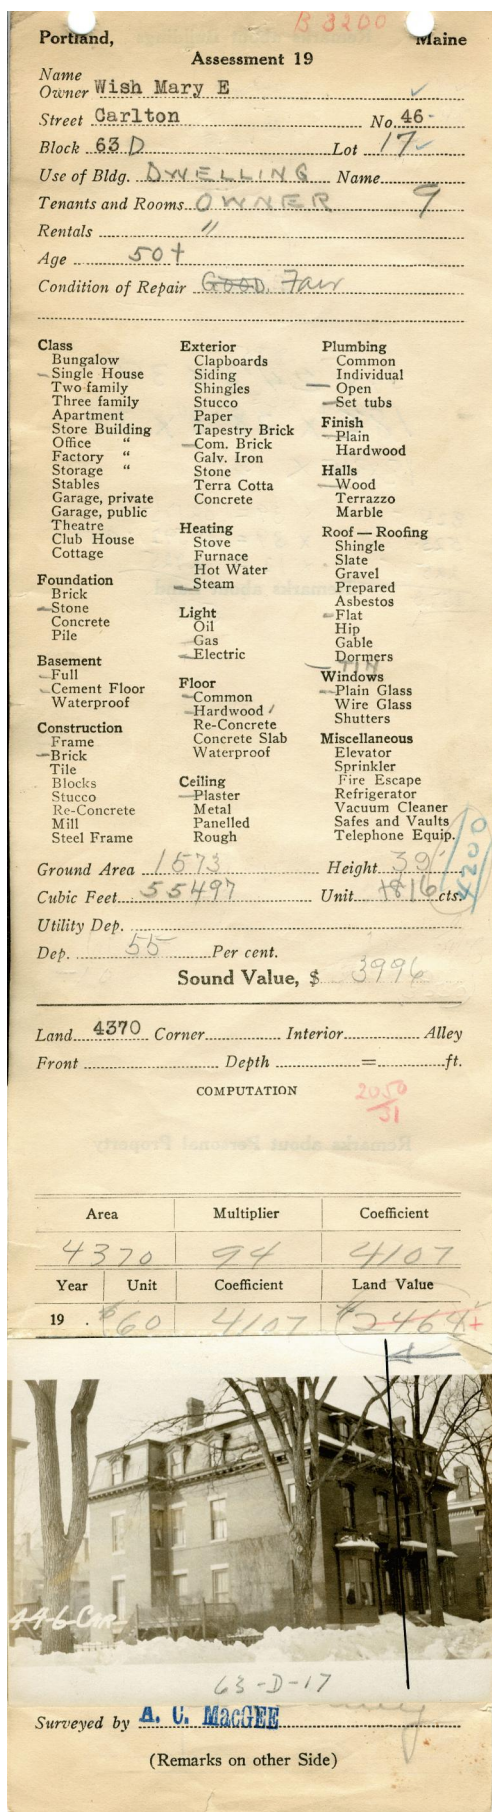 B 3200
Portland, Maine
Assessment 19
Name
Owner Wish Mary E
Street Carlton No. 46-
Block 63 D Lot 17
Use of Bldg. DWELLING Name
Tenants and Rooms OWNER 9
Rentals "
Age 50+
Condition of Repair GOOD. Fair
Class
Bungalow
Single House
Two family
Three family
Apartment
Store Building
Office "
Factory "
Storage "
Stables
Garage, private
Garage, public
Theatre
Club House
Cottage
Foundation
Brick
Stone
Concrete
Pile
Basement
Full
Cement Floor
Waterproof
Construction
Frame
Brick
Tile
Blocks
Stucco
Re-Concrete
Mill
Steel Frame
Exterior
Clapboards
Siding
Shingles
Stucco
Paper
Tapestry Brick
Com. Brick
Galv. Iron
Stone
Terra Cotta
Concrete
Heating
Stove
Furnace
Hot Water
Steam
Light
Oil
Gas
Electric
Floor
Common
Hardwood
Re-Concrete
Concrete Slab
Waterproof
Ceiling
Plaster
Metal
Panelled
Rough
Plumbing
Common
Individual
Open
Set tubs
Finish
Plain
Hardwood
Halls
Wood
Terrazzo
Marble
Roof — Roofing
Shingle
Slate
Gravel
Prepared
Asbestos
Flat
Hip
Gable
Dormers
TIN
Windows
Plain Glass
Wire Glass
Shutters
Miscellaneous
Elevator
Sprinkler
Fire Escape
Refrigerator
Vacuum Cleaner
Safes and Vaults
Telephone Equip.
4200
Ground Area 1573 Height 39'
Cubic Feet 55497 Unit 16 cts.
Utility Dep.
Dep. 55 Per cent.
Sound Value, $ 3996
Land 4370 Corner Interior Alley
Front Depth = ft.
COMPUTATION
2050
31
Area Multiplier Coefficient
4370 94 4107
Year Unit Coefficient Land Value
19 . $60 4107 $2464
446 CAR
63-D-17
Surveyed by A. C. MacGEE
(Remarks on other Side)